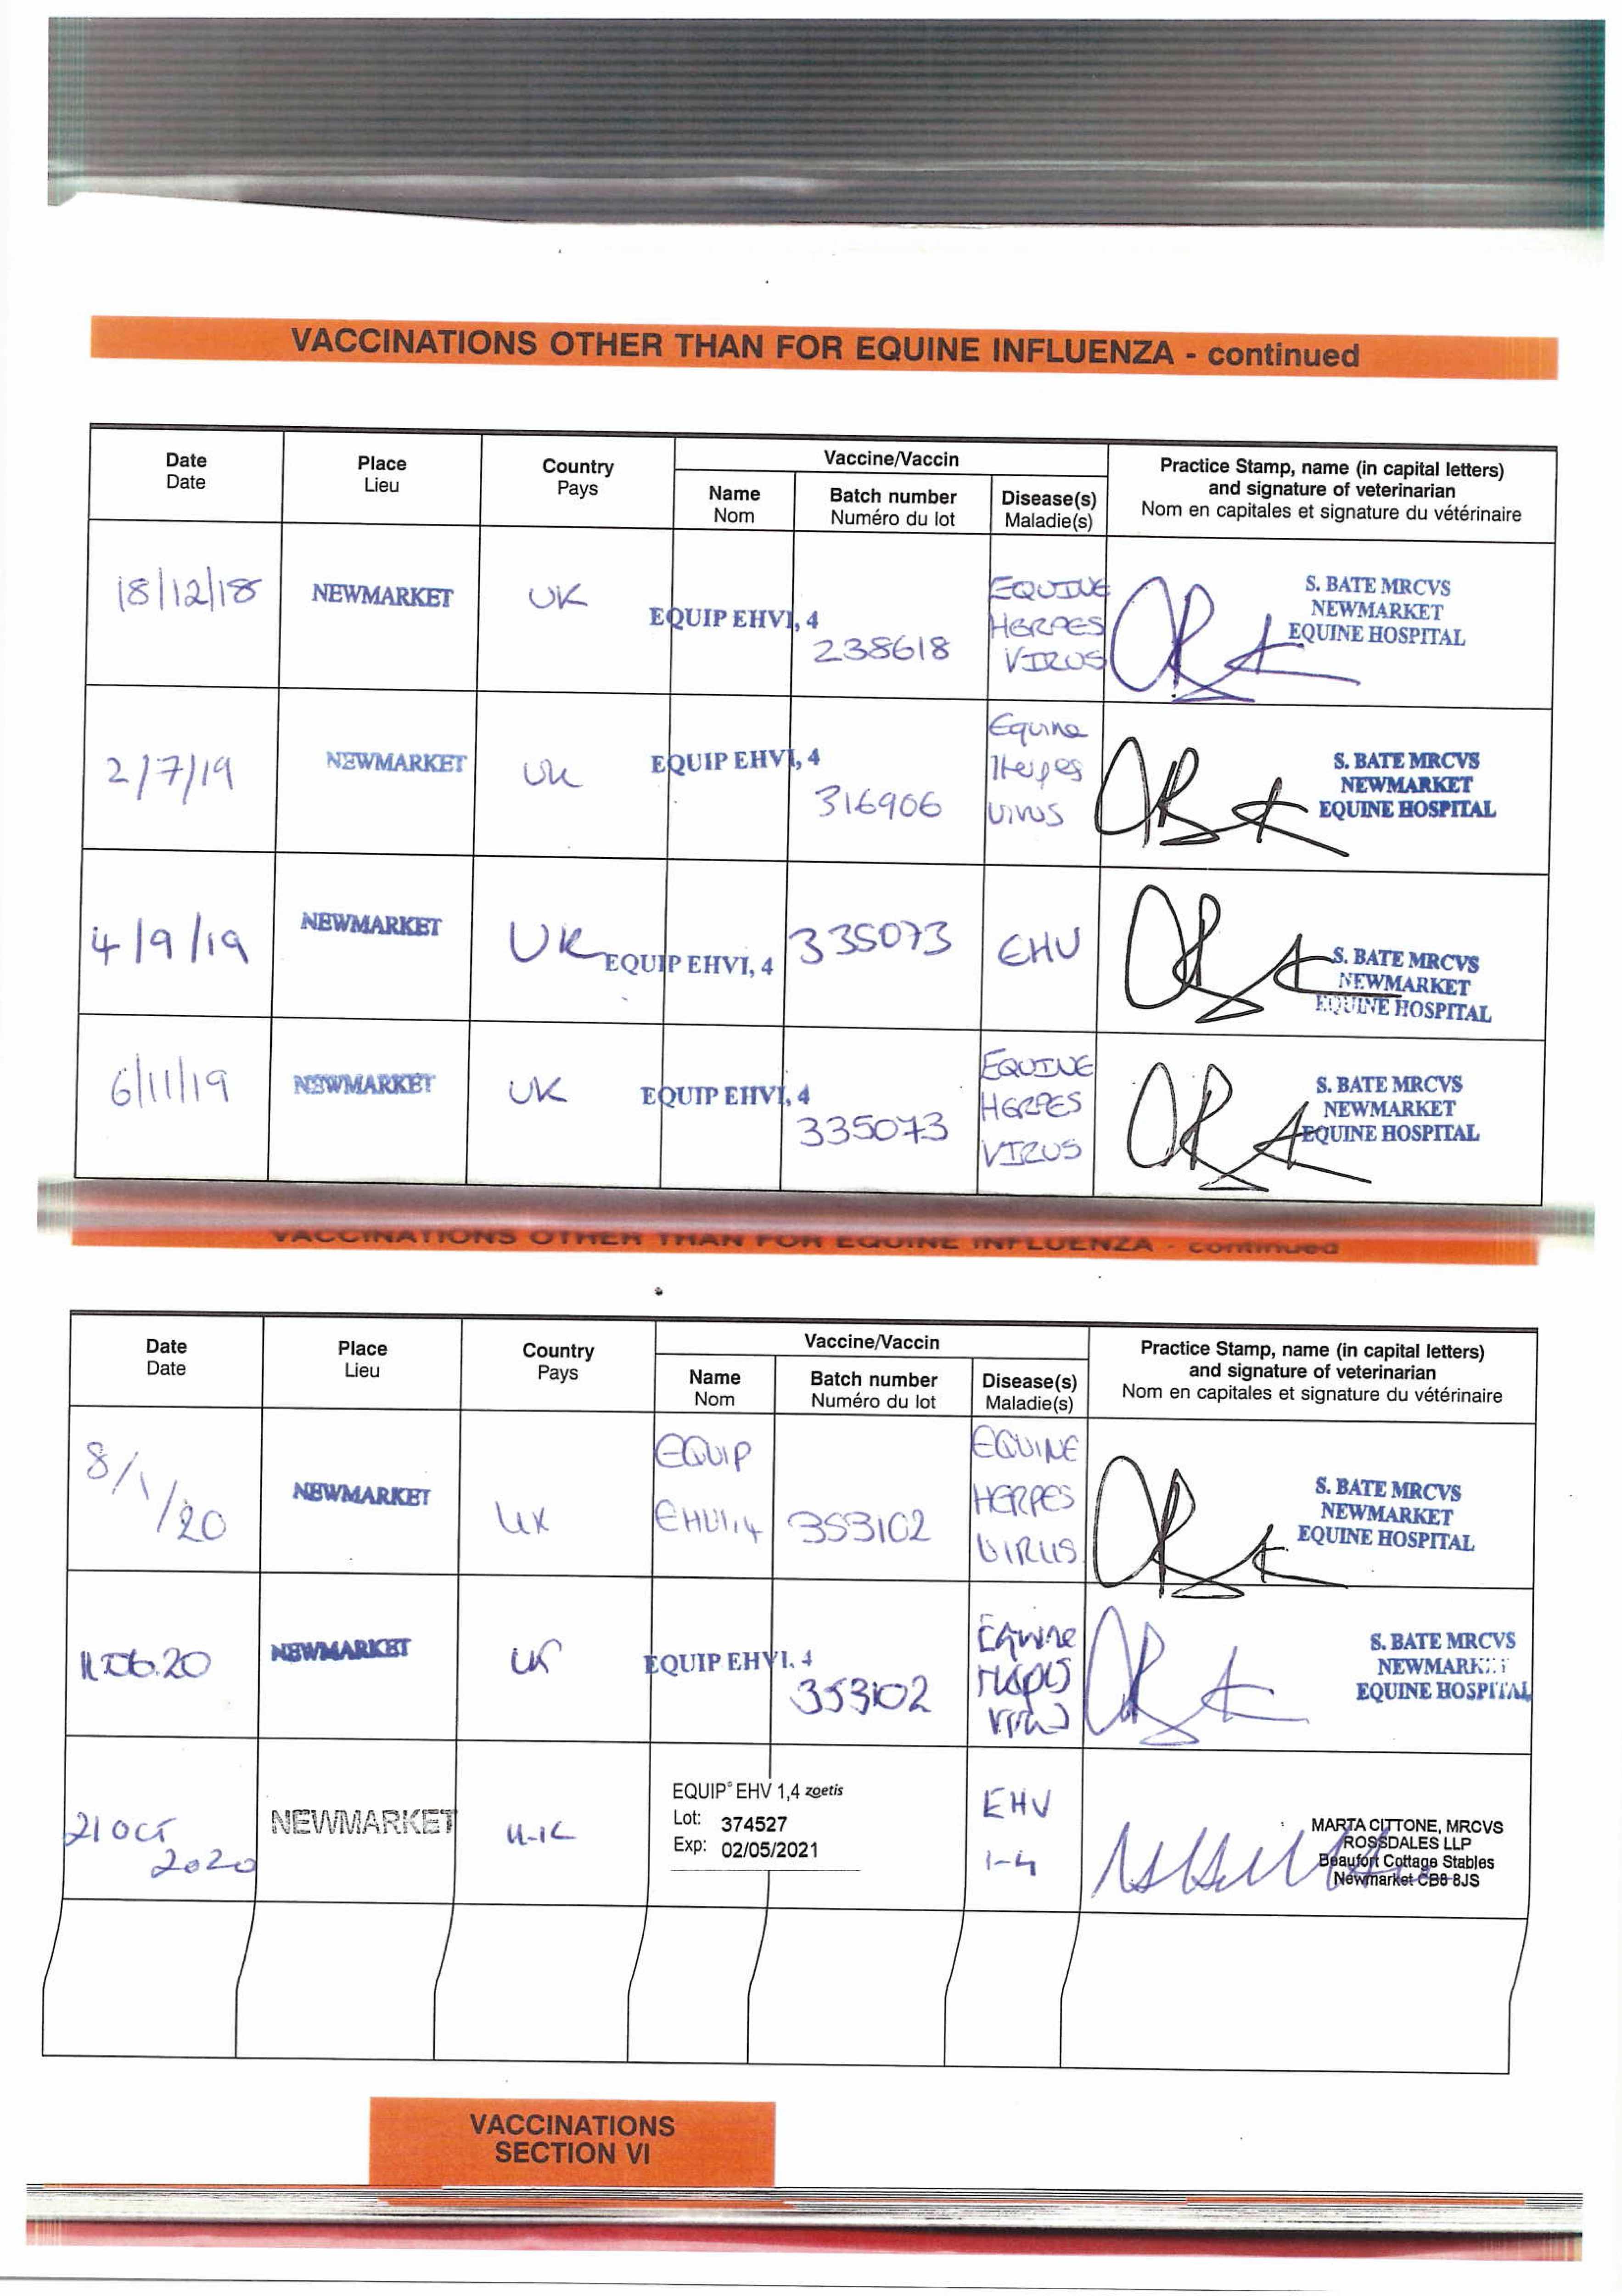 VACCINATIONS OTHER THAN FOR EQUINE INFLUENZA - continued
Date Place Country Vaccine/Vaccin Practice Stamp, name (in capital letters)
Date Lieu Pays Name Batch number Disease(s) and signature of veterinarian
Nom Numéro du lot Maladie(s) Nom en capitales et signature du vétérinaire
18/12/18 NEWMARKET UK EQUIP EHV1, 4 238618 EQUINE S. BATE MRCVS
HERPES NEWMARKET
VIRUS EQUINE HOSPITAL
2/7/19 NEWMARKET UK EQUIP EHV1, 4 316906 Equine S. BATE MRCVS
Herpes NEWMARKET
Virus EQUINE HOSPITAL
4/9/19 NEWMARKET UK EQUIP EHV1, 4 335073 EHV S. BATE MRCVS
NEWMARKET
EQUINE HOSPITAL
6/11/19 NEWMARKET UK EQUIP EHV1, 4 335073 EQUINE S. BATE MRCVS
HERPES NEWMARKET
VIRUS EQUINE HOSPITAL
VACCINATIONS OTHER THAN FOR EQUINE INFLUENZA - continued
Date Place Country Vaccine/Vaccin Practice Stamp, name (in capital letters)
Date Lieu Pays Name Batch number Disease(s) and signature of veterinarian
Nom Numéro du lot Maladie(s) Nom en capitales et signature du vétérinaire
8/1/20 NEWMARKET UK EQUIP EHV1,4 353102 EQUINE S. BATE MRCVS
HERPES NEWMARKET
VIRUS EQUINE HOSPITAL
NEWMARKET UK EQUIP EHV1, 4 353102 Equine S. BATE MRCVS
Herpes NEWMARKET
Virus EQUINE HOSPITAL
21 OCT NEWMARKET U.K EQUIP® EHV 1,4 zoetis EHV MARTA CITTONE, MRCVS
2020 Lot: 374527 1-4 ROSSDALES LLP
Exp: 02/05/2021 Beaufort Cottage Stables
Newmarket CB8 8JS
VACCINATIONS
SECTION VI